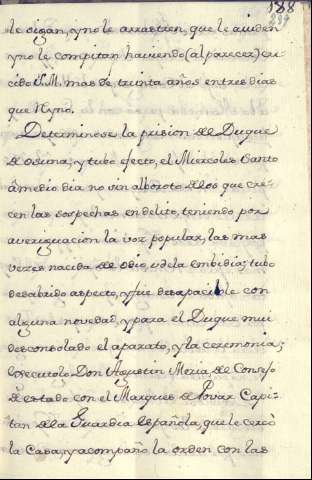 188
234
le sigan, y no le arrastren, que le aiuden
y no le compitan haviendo (al parecer) cre-
cido S.M. mas de, treinta años en tres dias
que Reynó.
Determinose la prision del Duque
de Osuna; y tubo efecto, el Miercoles Santo
â medio dia no sin alboroto de los que cre-
cen las sospechas en delito, teniendo por
averiguacion la voz popular, las mas
veces nacida de odio, u de la embidia; tubo
desabrido aspecto, y fue desapacible con
alguna novedad, y para el Duque mui
desconsolado el aparato, y la ceremonia;
Executolo Don Agustin Mexia, del Consejo
de estado con el Marques de Povar Capi-
tan de la Guardia Española, que le cercò
la Casa, y acompaño la orden con las